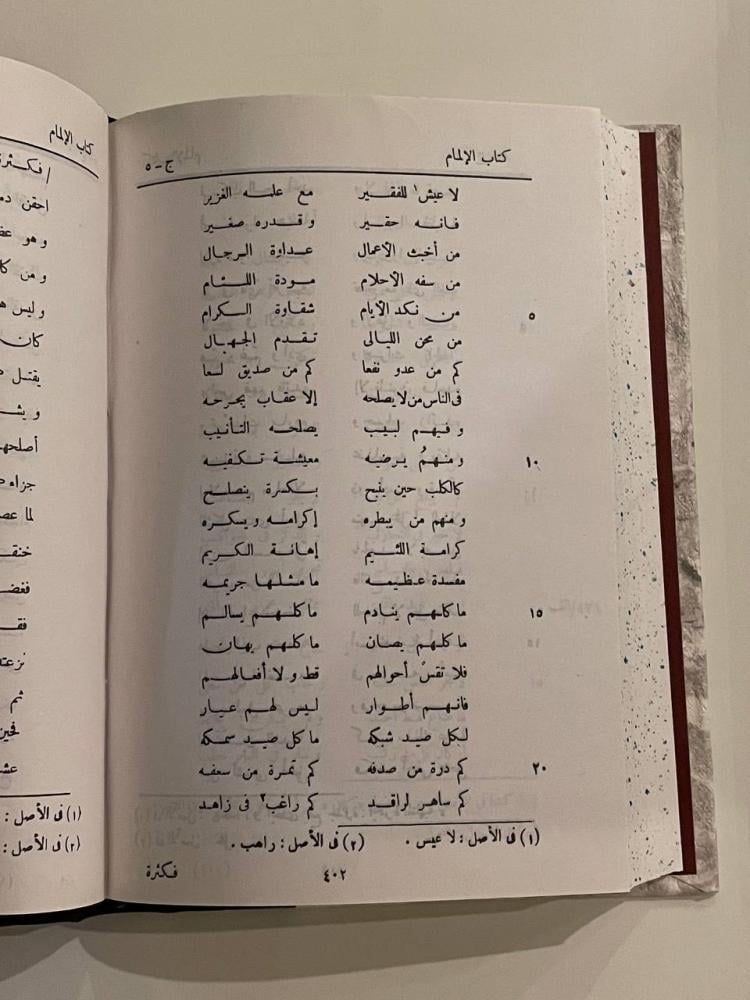 كتاب الإلمام ج-٥
لا عيش١ للفقير مع علمه الغزير
فانه حقير و قدره صغير
من أخبث الأعمال عداوة الرجال
من سفه الأحلام مودة اللئام
٥ من نكد الأيام شقاوة الكرام
من محن الليالى تقدم الجهال
كم من عدو نفعا كم من صديق لسعا
فى الناس من لا يصلحه إلا عقاب يجرحه
و فيهم لبيب يصلحه التأنيب
١٠ و منهمُ يرضيه معيشة تكفيه
كالكلب حين ينبح بكسرة ينصلح
و منهم من يبطره إكرامه و يسكره
كرامة اللئيم إهانة الكريم
مفسدة عظيمه ما مثلها جريمه
١٥ ما كلهم ينادم ما كلهم يسالم
ما كلهم يصان ما كلهم يهان
فلا تقسْ أحوالهم قط و لا أفعالهم
فانهم أطوار ليس لهم عيار
لكل صيد شبكه ما كل صيد سمكه
٢٠ كم درة من صدفه كم تمرة من سعفه
كم ساهر لراقد كم راغب٢ فى زاهد
(١) فى الأصل : لا عيس . (٢) فى الأصل : راهب .
٤٠٢ فكثرة
كتاب الإلمام
/ فكثرة
احقن
و هو
و من
و ليس
كان
يقتل
أصلحه
جزاه
لما
فقد
ثم
(١) فى الأصل :
(٢) فى الأصل :